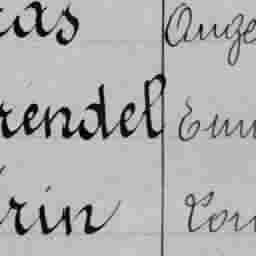 as Ange
rendel Emi
rin Lou